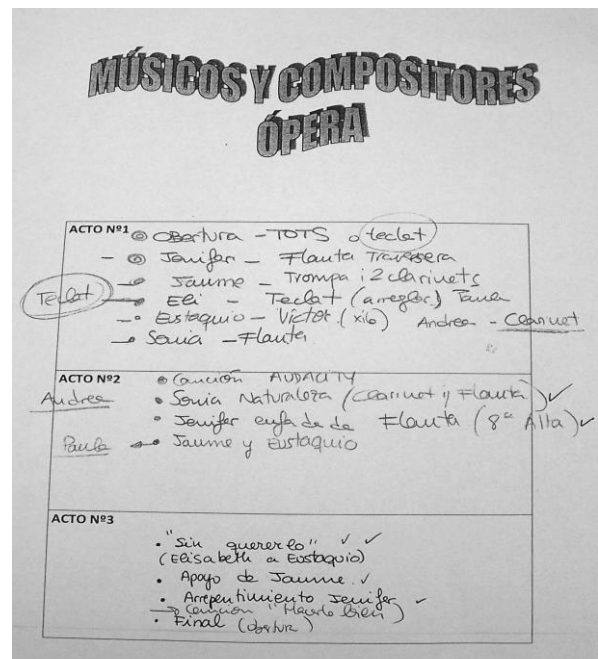 MÚSICOS Y COMPOSITORES
ÓPERA
ACTO Nº1
Obertura - TOTS o teclat
- Jenifer - Flauta Travesera
- Jaume - Trompa i 2 clarinets
Teclat - Eli - Teclat (arreglar) Paula
- Eustaquio - Víctor (xilo) Andrea - Clarinet
- Sonia - Flauta
ACTO Nº2
• Canción AUDACITY
Andrea • Sonia Naturaleza (Clarinet i Flauta) ✓
• Jenifer enfadada Flauta (8ª Alta) ✓
Paula • Jaume y Eustaquio
ACTO Nº3
• "Sin quererlo" ✓ ✓
(Elisabeth a Eustaquio)
• Apoyo de Jaume. ✓
• Arrepentimiento Jenifer ✓
→ Canción " bien)
• Final (obertur)